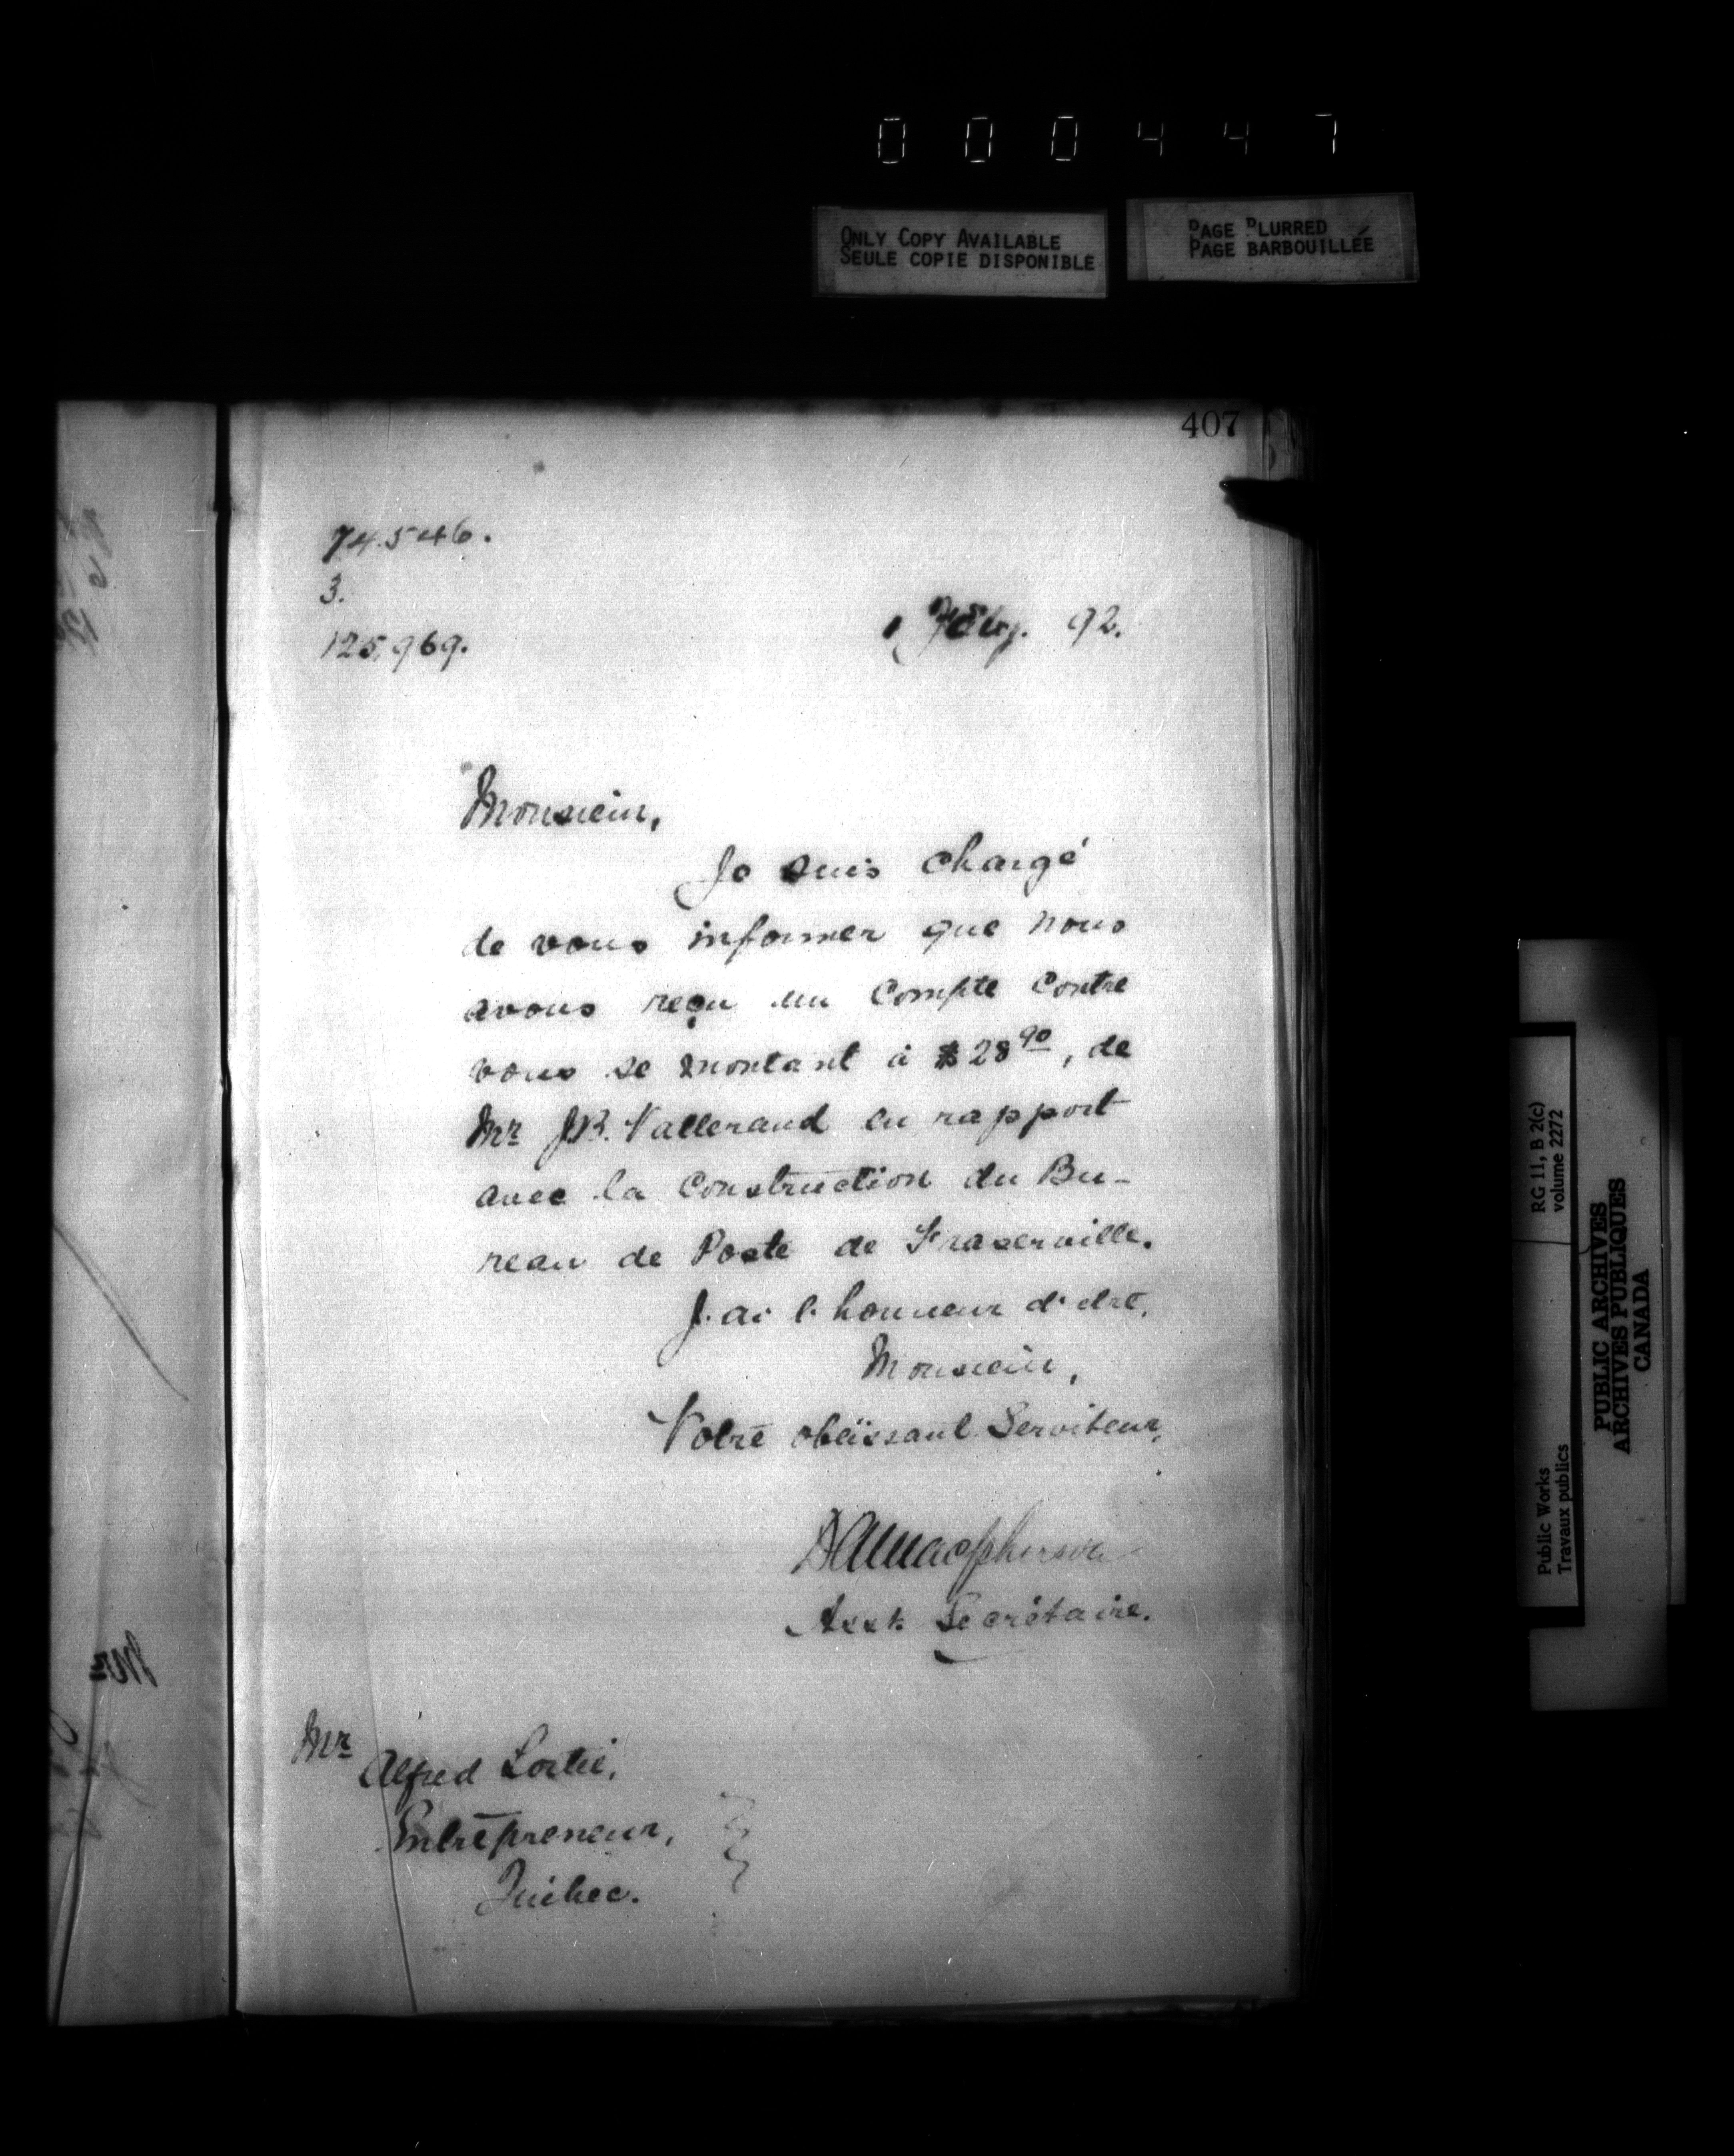 000447
ONLY COPY AVAILABLE
SEULE COPIE DISPONIBLE
PAGE BLURRED
PAGE BARBOUILLÉE
407
74.546.
3.
125,969.
1 Feby. 92.
Monsieur,
Je suis chargé
de vous informer que nous
avons reçu un Compte contre
vous se montant à $28 90, de
Mr J.B. Vallerand en rapport
avec la Construction du Bu-
reau de Poste de Fraserville.
J'ai l'honneur d'être,
Monsieur,
Votre obéissant Serviteur,
DAMacpherson
Asst. Secrétaire.
Mr
Alfred Lortie,
Entrepreneur,
Québec.
RG 11, B 2(c)
volume 2272
Public Works
Travaux publics
PUBLIC ARCHIVES
ARCHIVES PUBLIQUES
CANADA